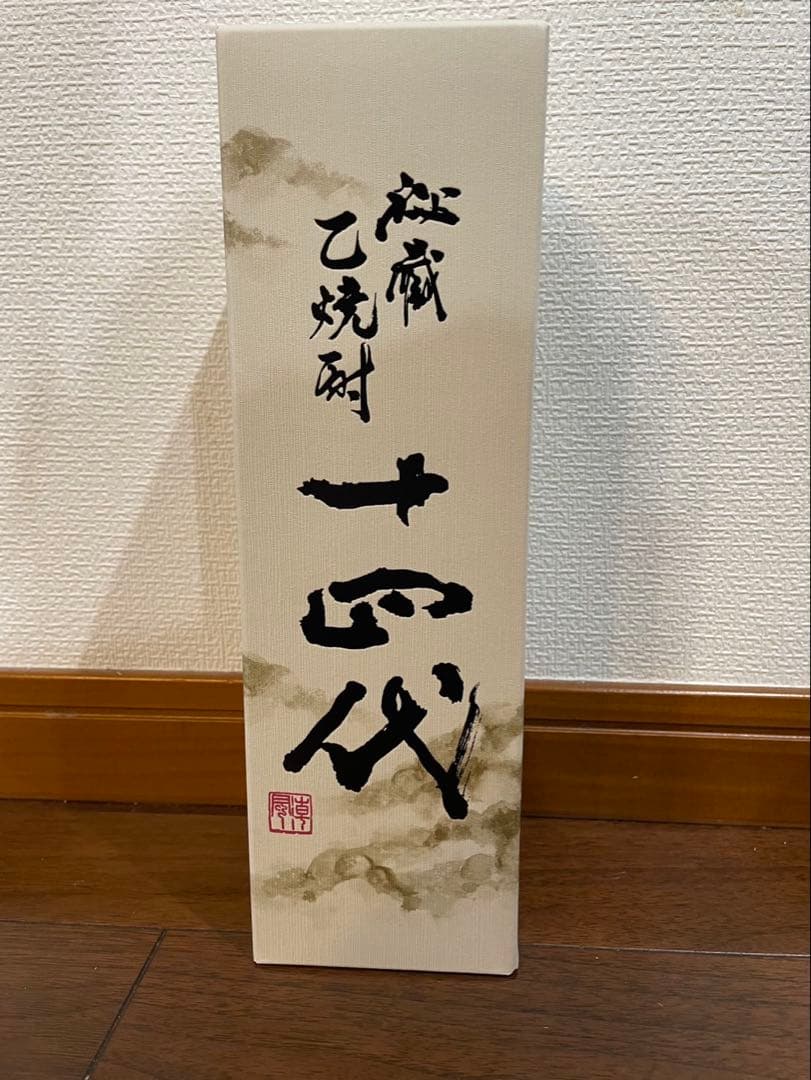 秘蔵
乙焼酎
十四代